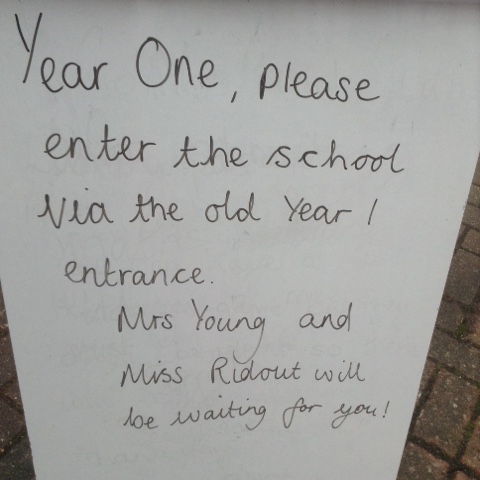 Year One, please
enter the school
via the old Year 1
entrance.
Mrs Young and
Miss Ridout will
be waiting for you!